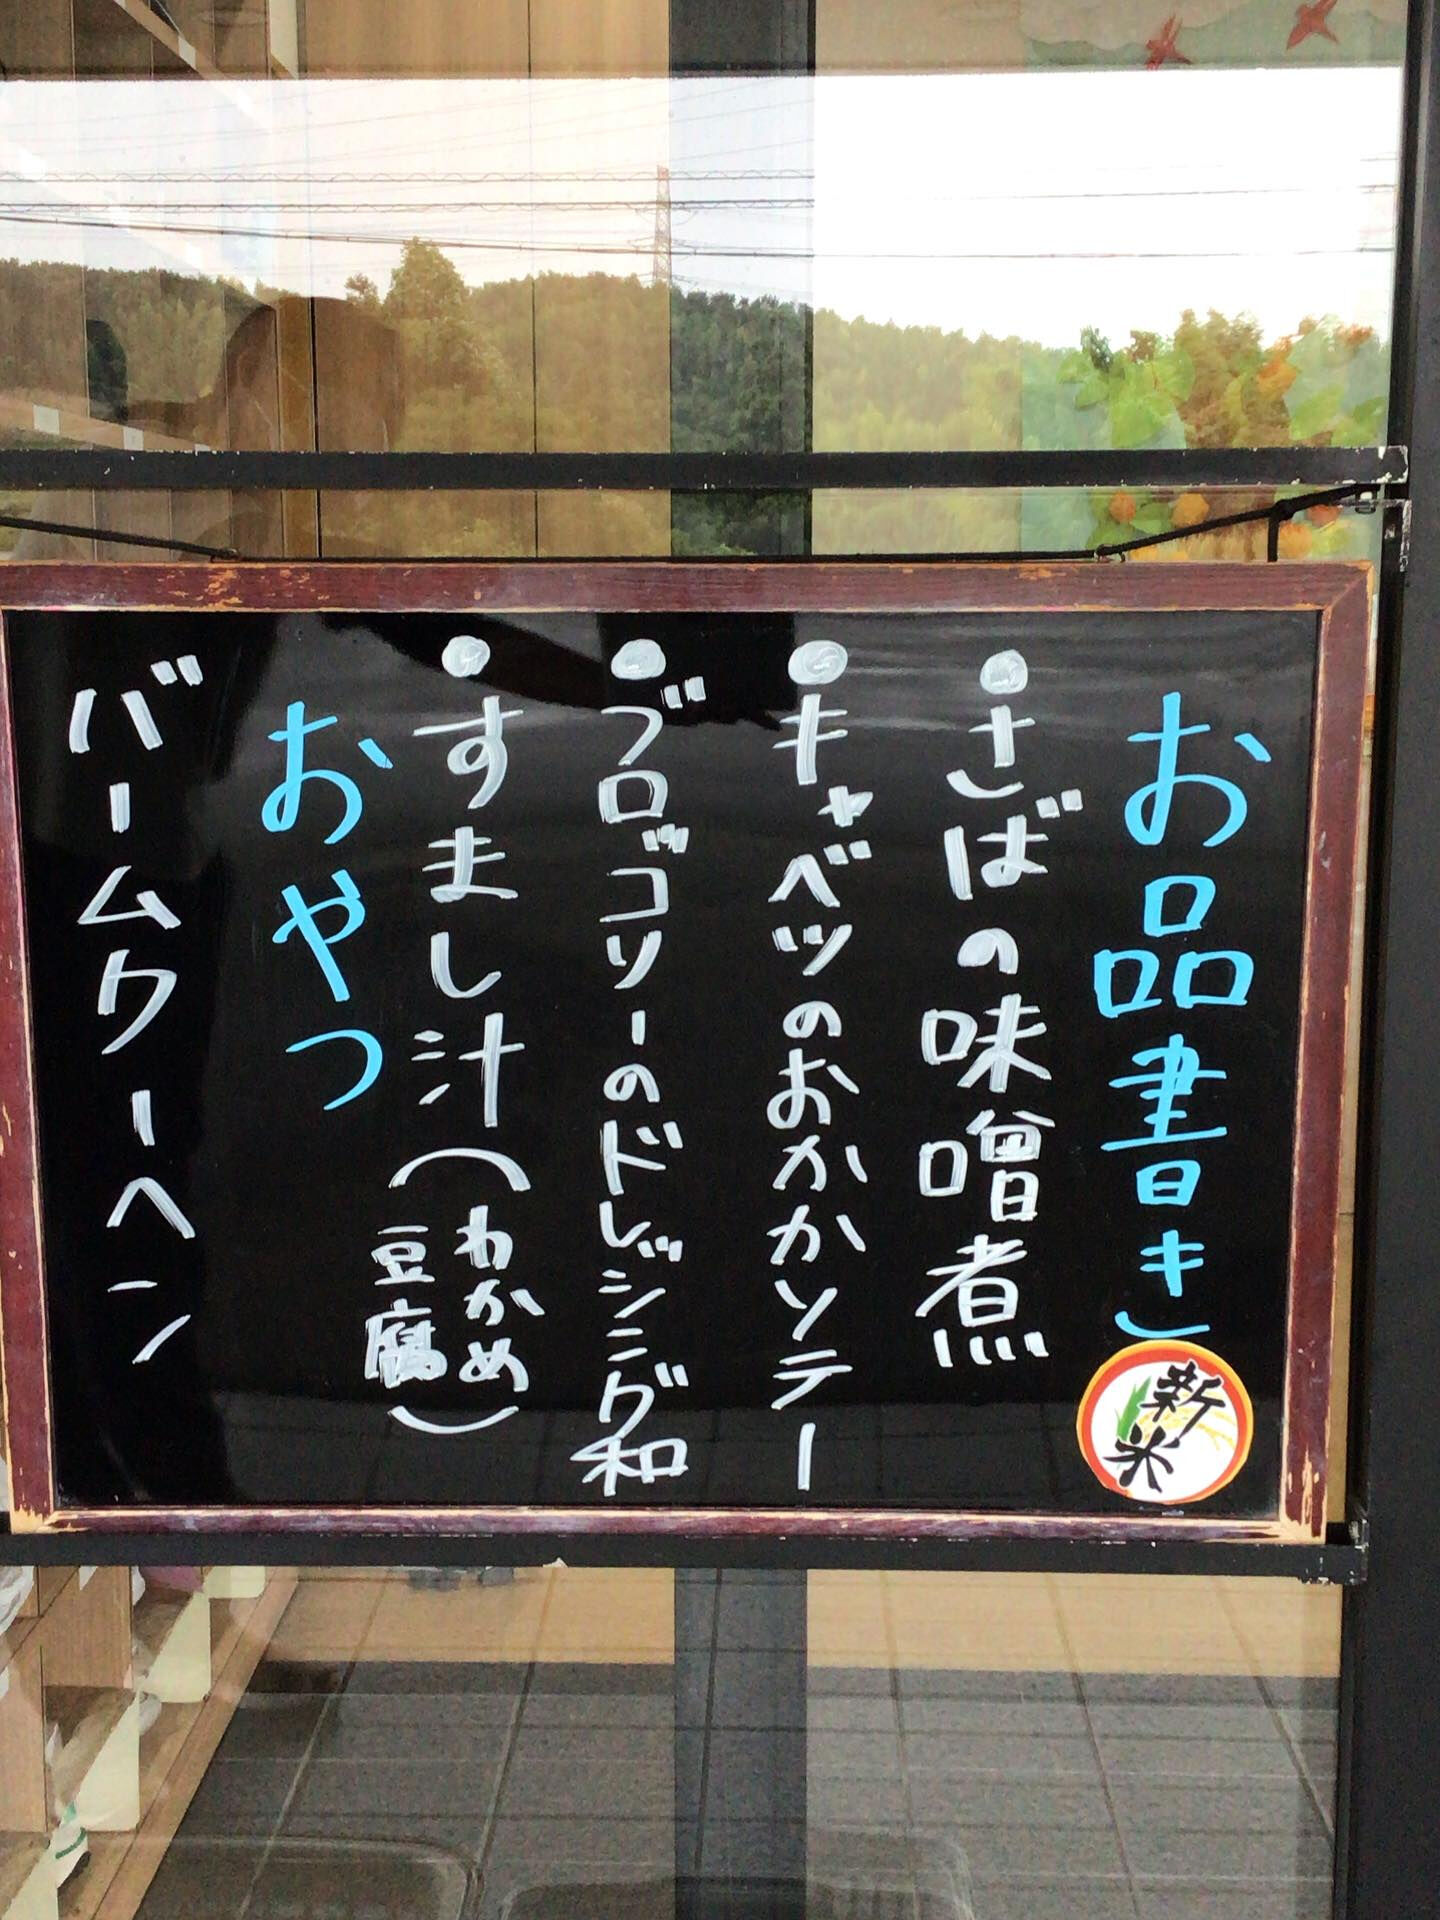 お品書き
新米
●さばの味噌煮
●キャベツのおかかソテー
●ブロッコリーのドレッシング和
●すまし汁(わかめ
豆腐)
おやつ
バームクーヘン